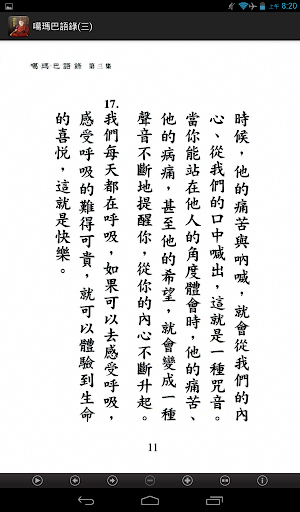 上午 8:20
噶瑪巴語錄(三)
噶瑪巴語錄 第三集
時候，他的痛苦與吶喊，就會從我們的內
心、從我們的口中喊出，這就是一種咒音。
當你能站在他人的角度體會時，他的痛苦、
他的病痛，甚至他的希望，就會變成一種
聲音不斷地提醒你，從你的內心不斷升起。
17.
我們每天都在呼吸，如果可以去感受呼吸，
感受呼吸的難得可貴，就可以體驗到生命
的喜悅，這就是快樂。
11